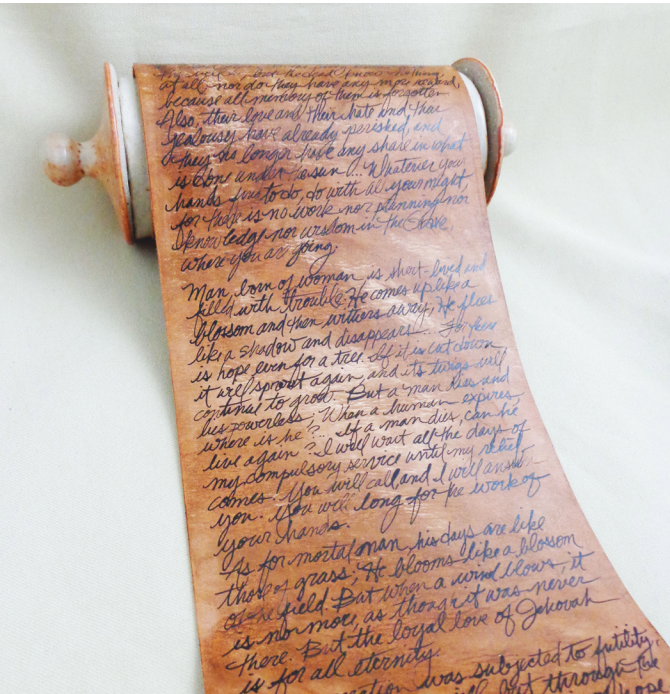 but the dead know nothing
at all nor do they have any more reward,
because all memory of them is forgotten
Also, their love and their hate and their
jealousy have already perished, and
they no longer have any share in what
is done under the sun... Whatever your
hands find to do, do with all your might,
for there is no work nor planning nor
knowledge nor wisdom in the Grave,
where you are going.
Man born of woman is short-lived and
filled with trouble. He comes up like a
blossom and then withers away; He flees
like a shadow and disappears... For there
is hope even for a tree. If it is cut down
it will sprout again, and its twigs will
continue to grow. But a man dies and
lies powerless; When a human expires,
where is he?... If a man dies, can he
live again? I will wait all the days of
my compulsory service until my relief
comes. You will call and I will answer
you. You will long for the work of
your hands.
As for mortal man, his days are like
those of grass; He blooms like a blossom
of the field. But when a wind blows, it
is no more, as though it was never
there. But the loyal love of Jehovah
is for all eternity.
was subjected to futility,
but through the
hope